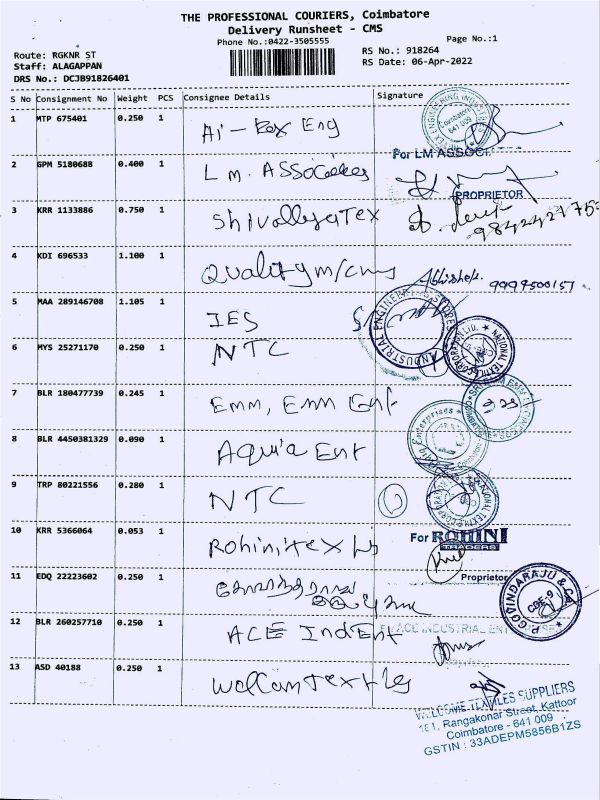 THE PROFESSIONAL COURIERS, Coimbatore
Delivery Runsheet - CMS
Phone No.:0422-3505555
Page No.:1
Route: RGKNR ST
RS No.: 918264
Staff: ALAGAPPAN
RS Date: 06-Apr-2022
DRS No.: DCJB91826401
S No Consignment No Weight PCS Consignee Details Signature
1 MTP 675401 0.250 1 Ai-Rox Eng
Coimbatore
641 009
For LM ASSOCI
2 GPM 5180688 0.400 1 L M. ASSociates
PROPRIETOR
3 KRR 1133886 0.750 1 Shivalleya Tex
4 KDI 696533 1.100 1 Quality m/c
Abhishek. 9994500157
5 MAA 289146708 1.105 1 IES
INDUSTRIAL ENGINEERING STORES
6 MYS 25271170 0.250 1 NTC
NATIONAL TEXTILE CORPORATION LTD.
7 BLR 180477739 0.245 1 Emm, Emm Ent
8 BLR 4450381329 0.090 1 Aqua Ent
Enterprises
9 TRP 80221556 0.280 1 NTC
NATIONAL TEXTILE CORP
10 KRR 5366064 0.053 1 Rohini tex
For ROHINI
TRADERS
Proprietor
11 EDQ 22223602 0.250 1
P. GOVINDARAJU & CO
CBE-9
12 BLR 260257710 0.250 1 ACE Indent
ACE INDUSTRIAL ENT
13 ASD 40188 0.250 1 Welcom Textiles
WELCOME TEXTILES SUPPLIERS
161, Rangakonar Street, Kattoor
Coimbatore - 641 009
GSTIN : 33ADEPM5856B1ZS